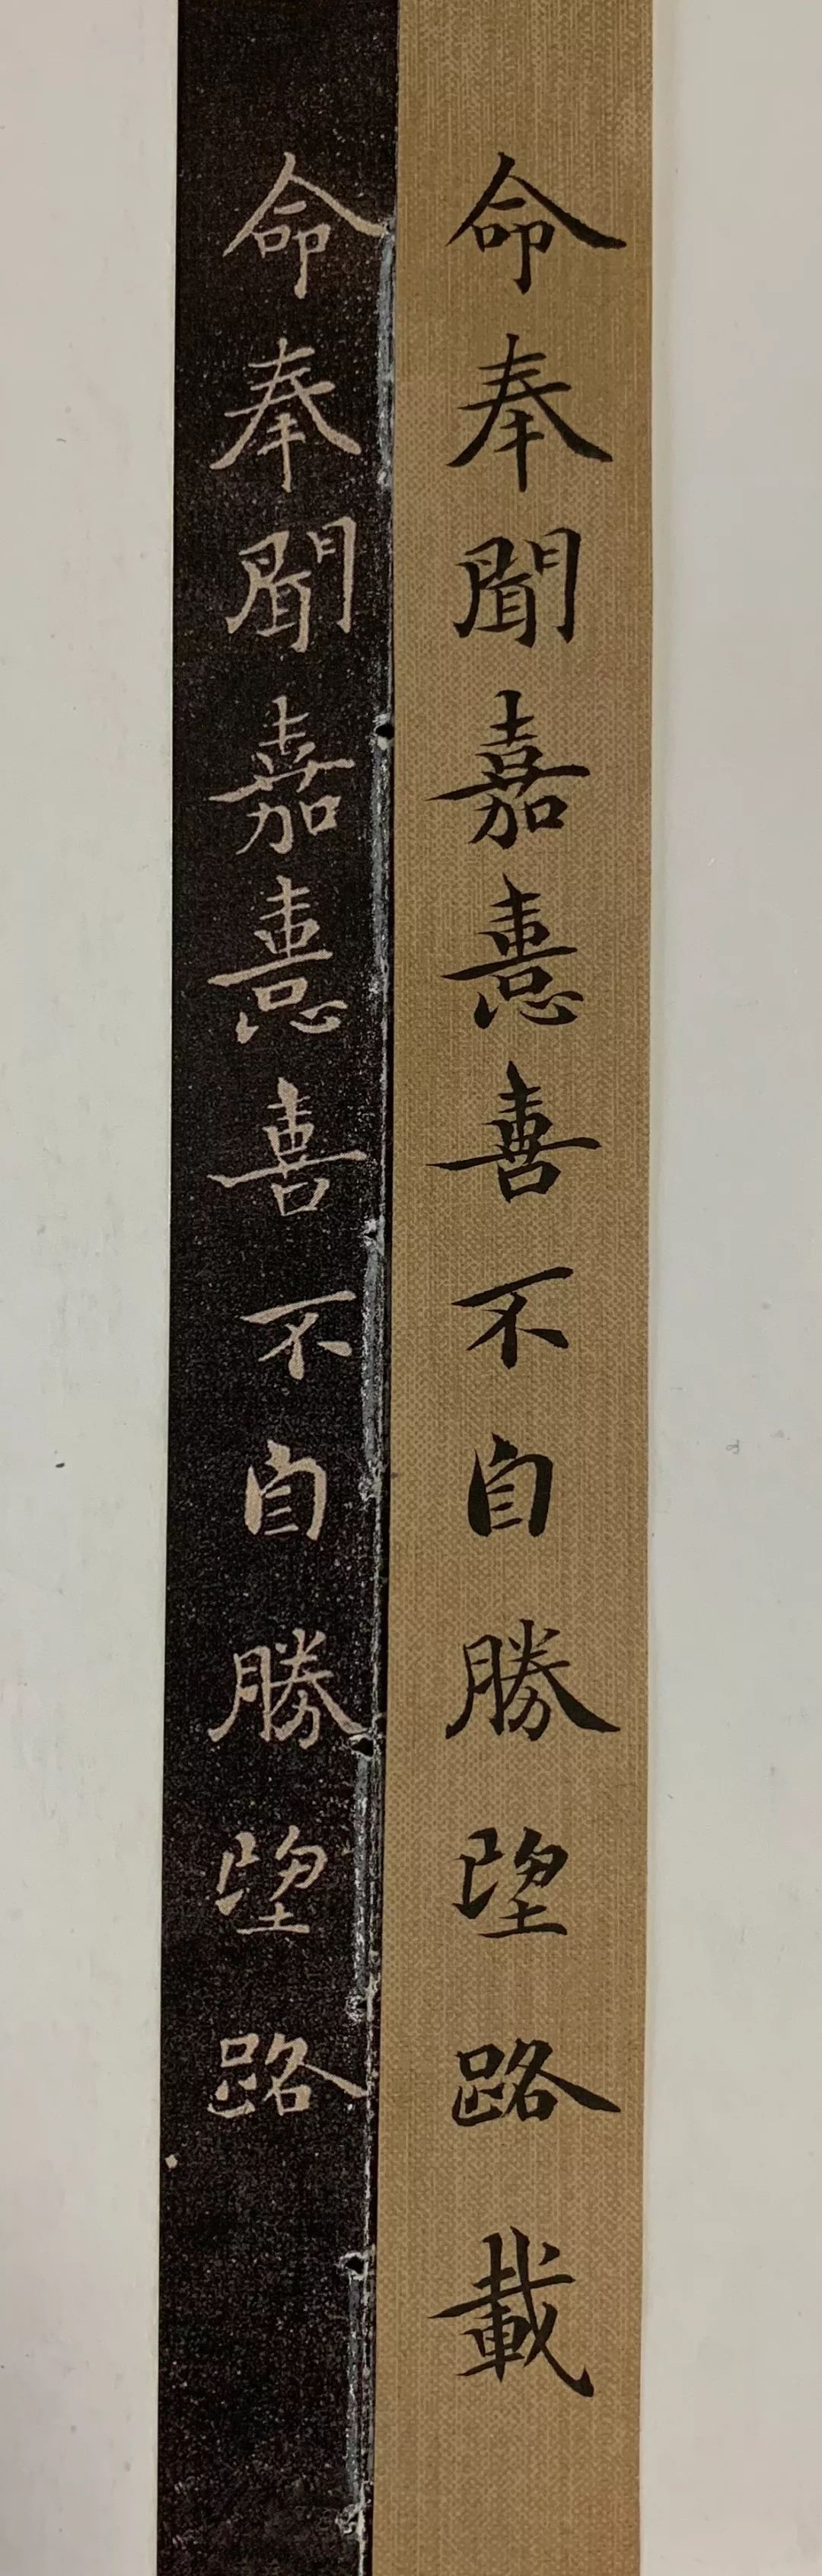 命奉聞嘉憙喜不自勝望路載
命奉聞嘉憙喜不自勝望路